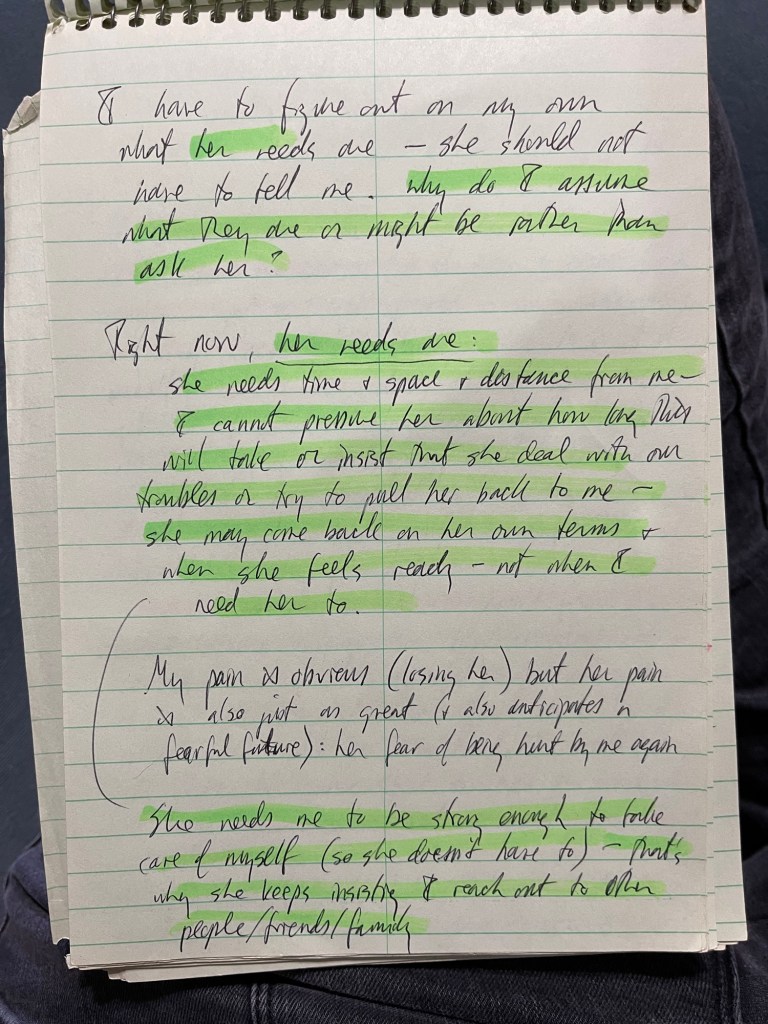 I have to figure out on my own
what her needs are – she should not
have to tell me. Why do I assume
what they are or might be rather than
ask her?
Right now, her needs are:
she needs time & space & distance from me –
I cannot pressure her about how long this
will take or insist that she deal with our
troubles or try to pull her back to me –
she may come back on her own terms &
when she feels ready – not when I
need her to.
My pain is obvious (losing her) but her pain
is also just as great (& also anticipates a
fearful future): her fear of being hurt by me again
She needs me to be strong enough to take
care of myself (so she doesn't have to) – that's
why she keeps insisting I reach out to other
people/friends/family